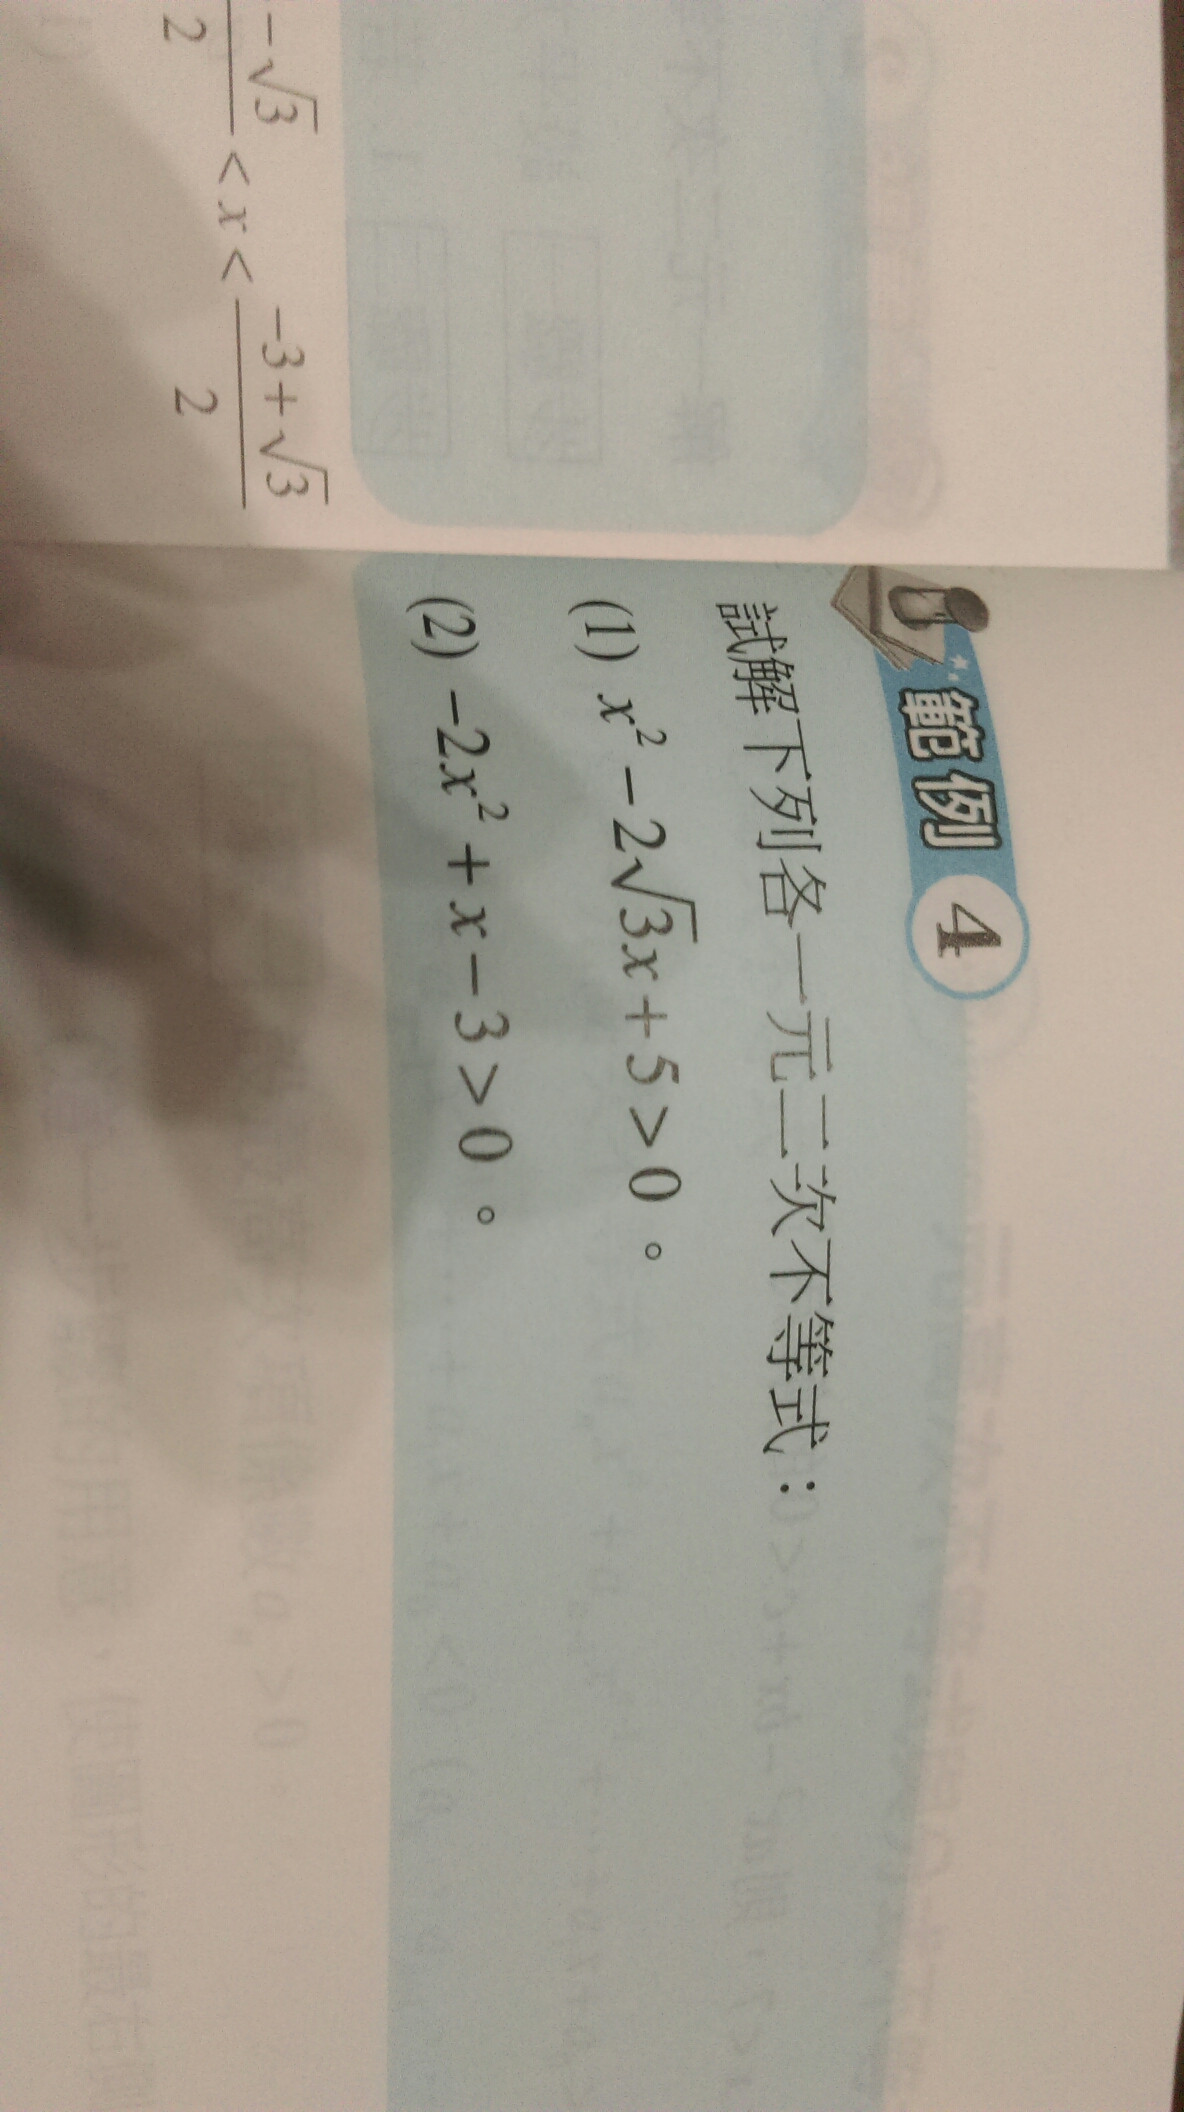 -√3/2 < x < (-3+√3)/2
範例 4
試解下列各一元二次不等式：
(1) x² − 2√3x + 5 > 0。
(2) −2x² + x − 3 > 0。